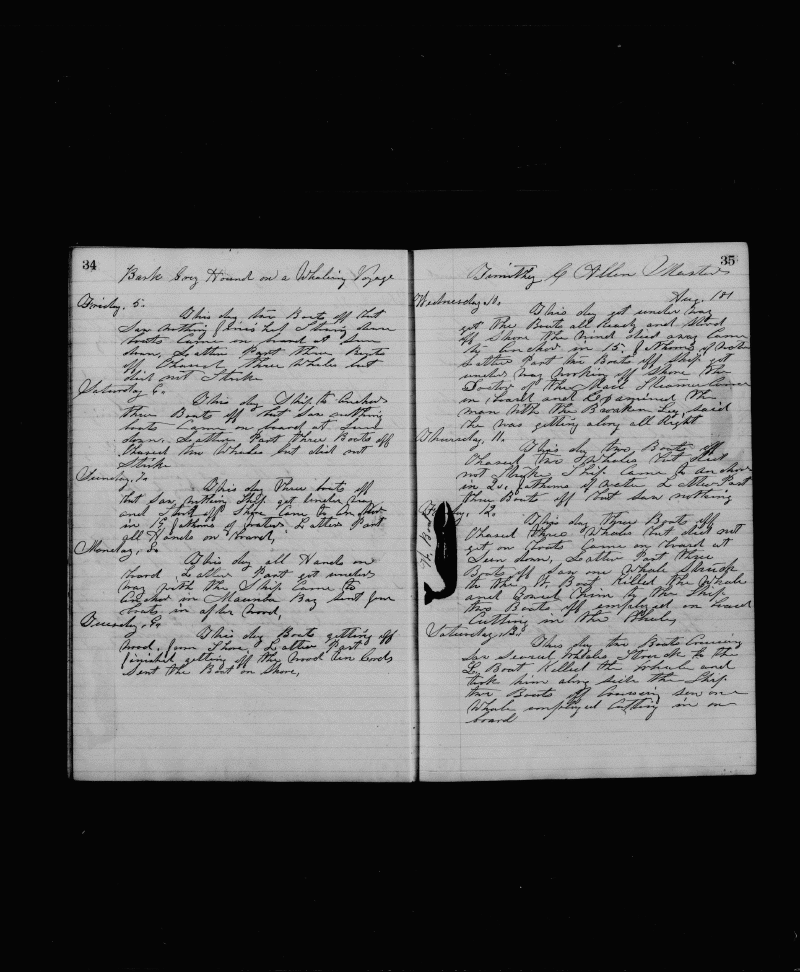 34
Bark Grey Hound on a Whaling Voyage
Friday, 5.
This day two Boats off but
Saw nothing
boats Came on board at Sun
down, Latter Part three Boats
off Chased three Whales but
did not Strike
Saturday 6.
This day Ship to Anchor
three Boats off but Saw nothing
boats Came on board at Sun
down, Latter Part three Boats off
Chased two Whales but did not
Strike
Sunday, 7.
This day Three boats off
but Saw nothing Ship got under way
and Stood off Shore Came to Anchor
in 19 fathoms of water, Latter Part
all Hands on board,
Monday, 8.
This day all Hands on
board, Latter Part got under
way with the Ship Came to
Anchor in Bay Sent four
boats in after wood,
Tuesday, 9.
This day Boats getting off
wood, from Shore, Latter Part
finished getting off the wood ten Cords
Sent the Boat on Shore,
35
Timothy C Allen Master
Aug. 181
Wednesday 10.
This day got under way
got the Boats all Ready and Stood
off Shore the wind died away Came
to Anchor in 15 fathoms of water
Latter Part two Boats off Ship got
under way working off Shore, the
Doctor of the Mail Steamer Came
on board and Examined the
man with the Broken Leg, said
he was getting along all Right
Thursday, 11.
This day two Boats off
Chased two Whales but did
not Strike, Ship Came to anchor
in 20, fathoms of water Latter Part
three Boats off but saw nothing
12.
This day three Boats off
Chased three Whales but did not
get on Boats Came on board at
Sun down, Latter Part three
Boats off saw one Whale Struck
to the Boat Killed the Whale
and Brought him to the Ship
two Boats off employed on board
Cutting in the Whale,
Saturday, 13.
This day two Boats Cruising
Saw several Whales Struck to the
L, Boat Killed the Whale and
took him along side the Ship
two Boats off Cruising saw one
Whale employed Cutting in on
board